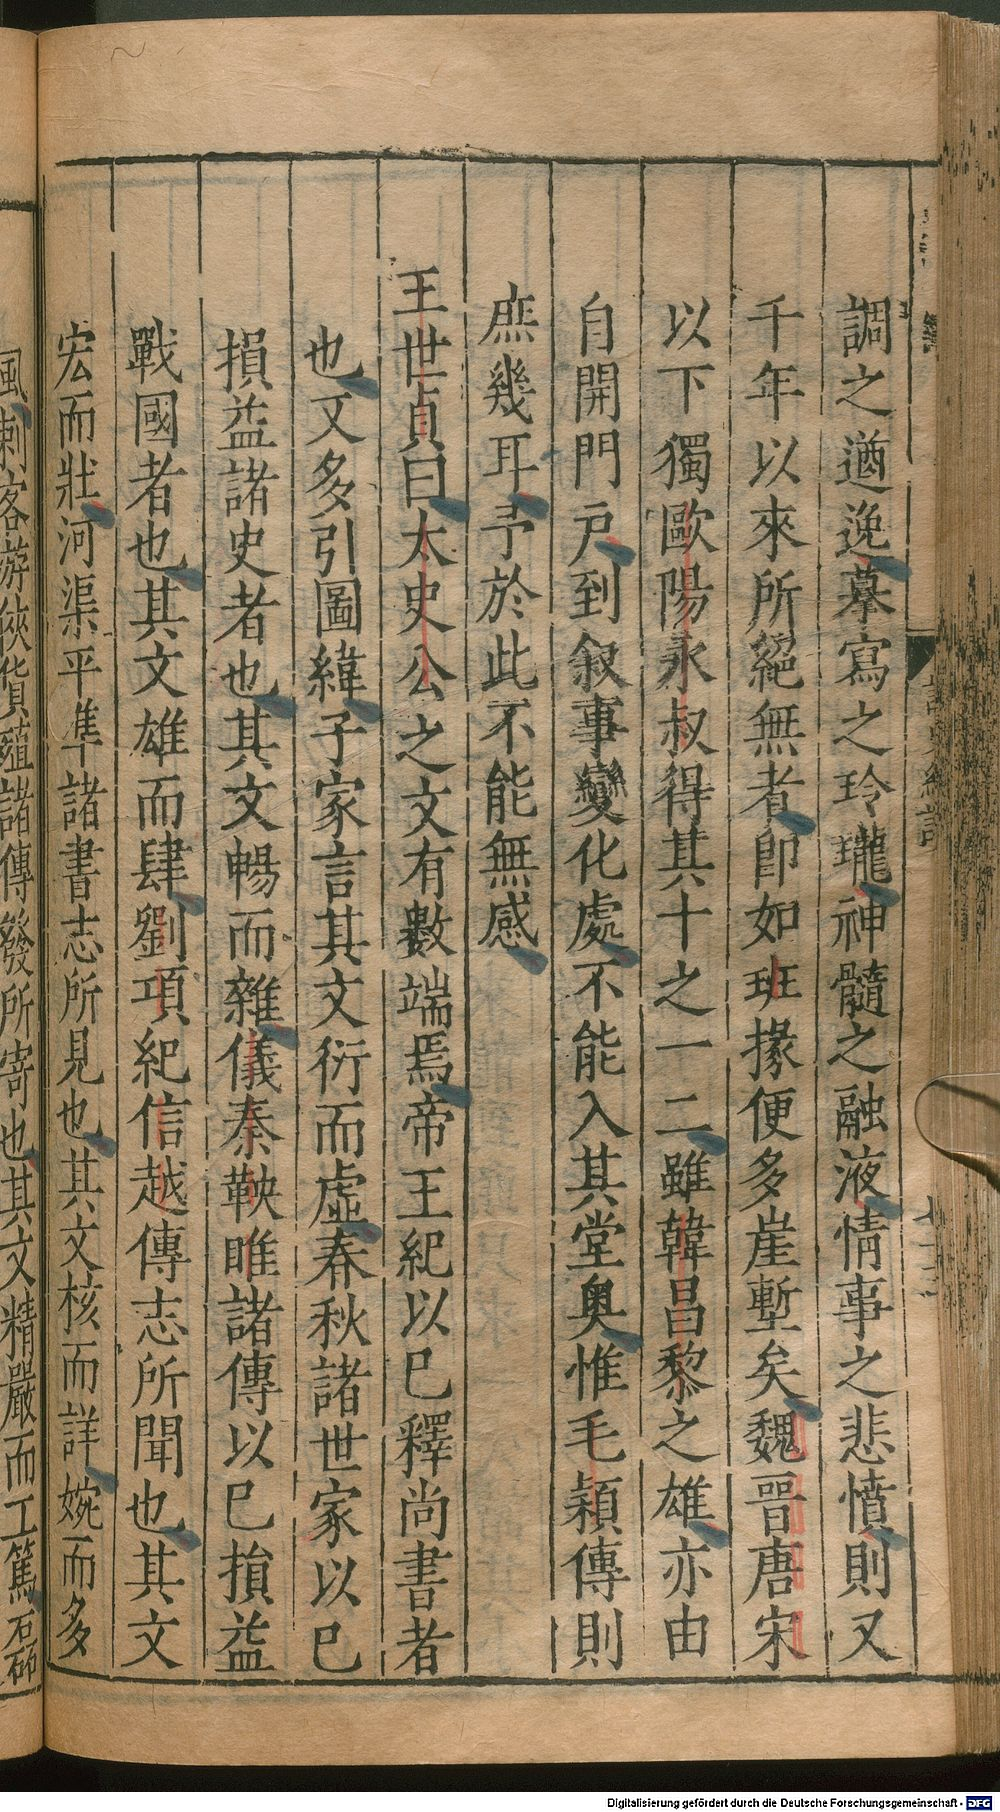 調之遒逸摹寫之玲瓏神髓之融液情事之悲憤則又
千年以來所絕無者即如班掾便多崖塹矣魏晉唐宋
以下獨歐陽永叔得其十之一二雖韓昌黎之雄亦由
自開門戶到敘事變化處不能入其堂奧惟毛穎傳則
庶幾耳予於此不能無感
王世貞曰太史公之文有數端焉帝王紀以已釋尚書者
也又多引圖緯子家言其文衍而虛春秋諸世家以已
損益諸史者也其文暢而雜儀秦鞅睢諸傳以已損益
戰國者也其文雄而肆劉項紀信越傳志所聞也其文
宏而壯河渠平準諸書志所見也其文核而詳婉而多
風刺客游俠貨殖諸傳發所寄也其文精嚴而工篤磊
Digitalisierung gefördert durch die Deutsche Forschungsgemeinschaft - DFG